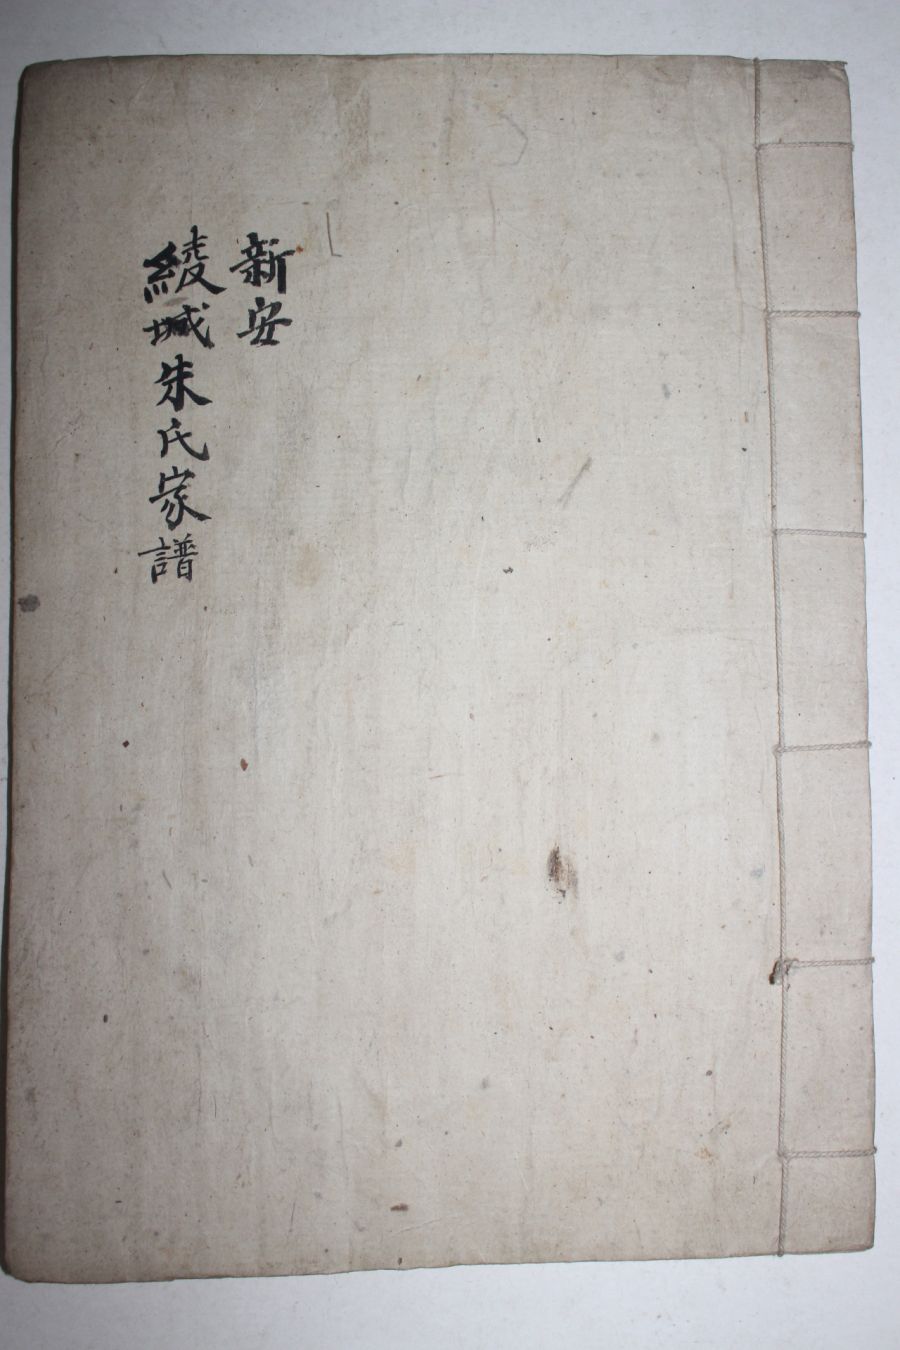 新安
綾城朱氏家譜